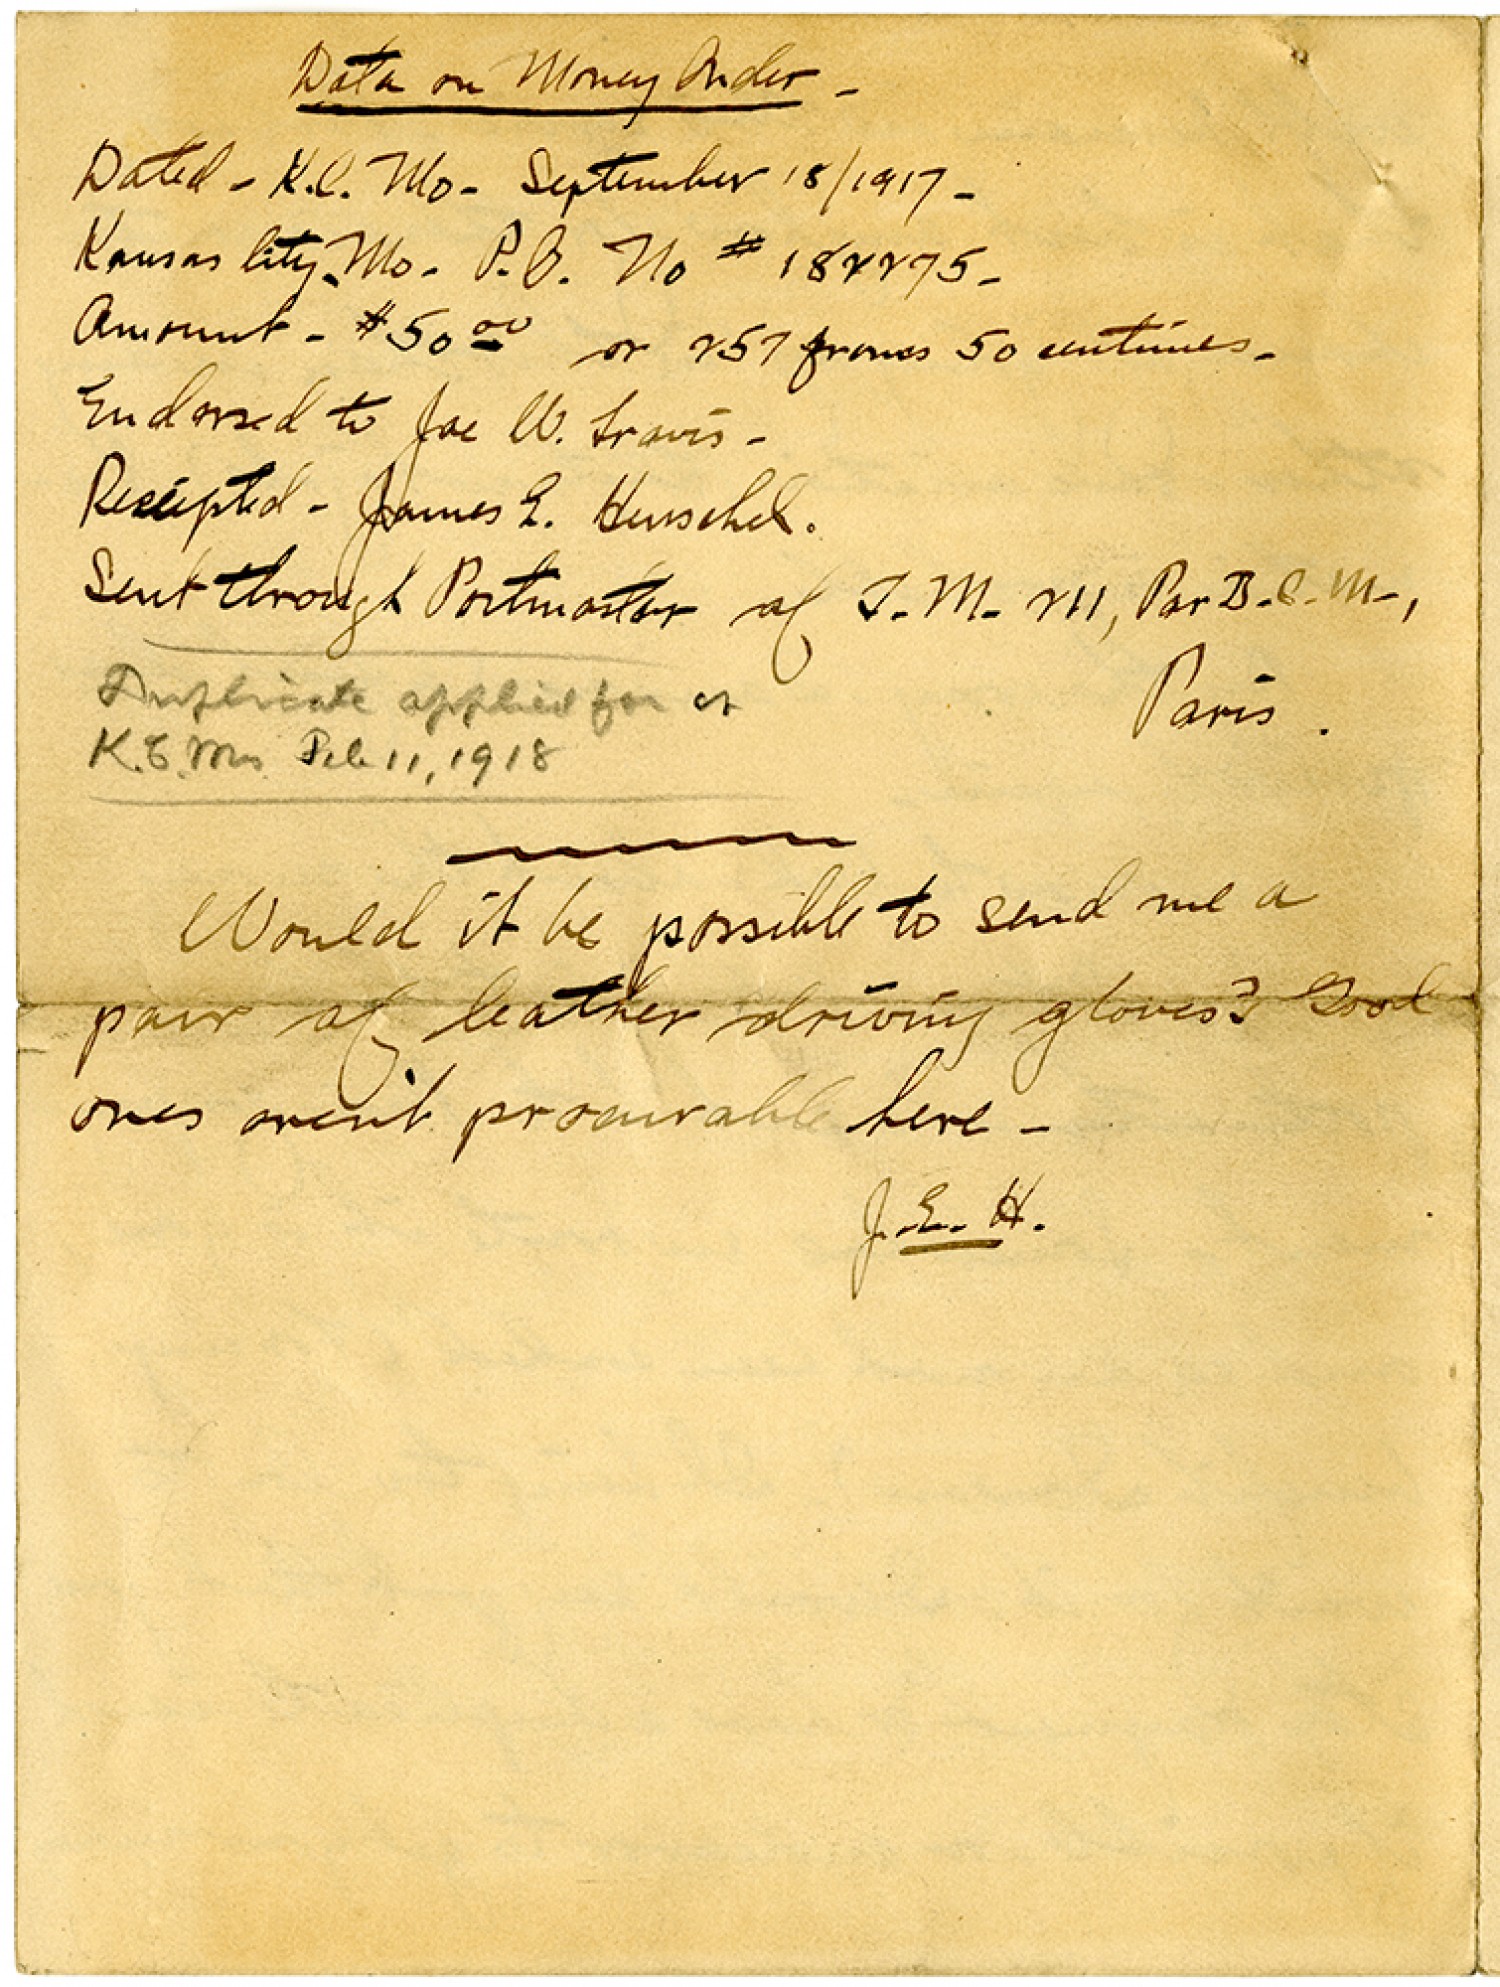 Data on Money Order -
Dated - K.C. Mo - September 18/1917 -
Kansas City, Mo - P.O. No # 182275 -
Amount - $50 00 or 257 francs 50 centimes -
Endorsed to Joe W. Travis -
Receipted - James E. Henschel.
Sent through Postmaster of T.M. 211, Par B.C.M.,
Paris.
Duplicate applied for at
K.C. Mo Feb 11, 1918
Would it be possible to send me a
pair of leather driving gloves? Good
ones aren't procurable here -
J.E.H.